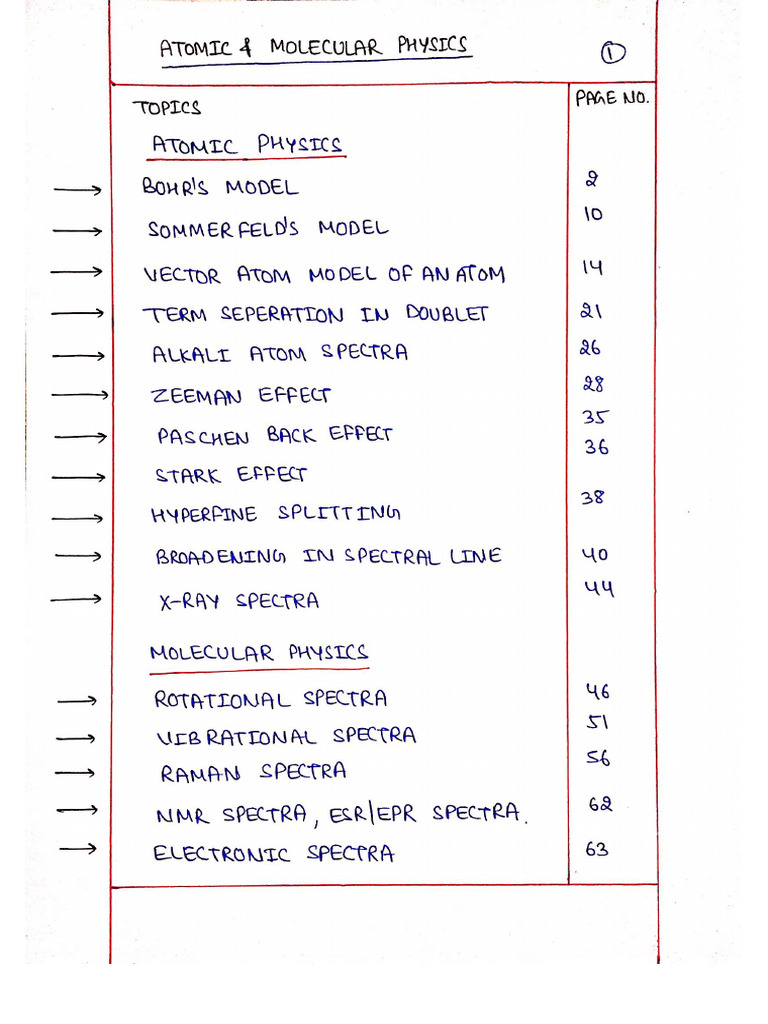 ATOMIC & MOLECULAR PHYSICS 1
TOPICS PAGE NO.
ATOMIC PHYSICS
BOHR'S MODEL 2
SOMMERFELD'S MODEL 10
VECTOR ATOM MODEL OF AN ATOM 14
TERM SEPERATION IN DOUBLET 21
ALKALI ATOM SPECTRA 26
ZEEMAN EFFECT 28
PASCHEN BACK EFFECT 35
STARK EFFECT 36
HYPERFINE SPLITTING 38
BROADENING IN SPECTRAL LINE 40
X-RAY SPECTRA 44
MOLECULAR PHYSICS
ROTATIONAL SPECTRA 46
VIBRATIONAL SPECTRA 51
RAMAN SPECTRA 56
NMR SPECTRA, ESR/EPR SPECTRA. 62
ELECTRONIC SPECTRA 63